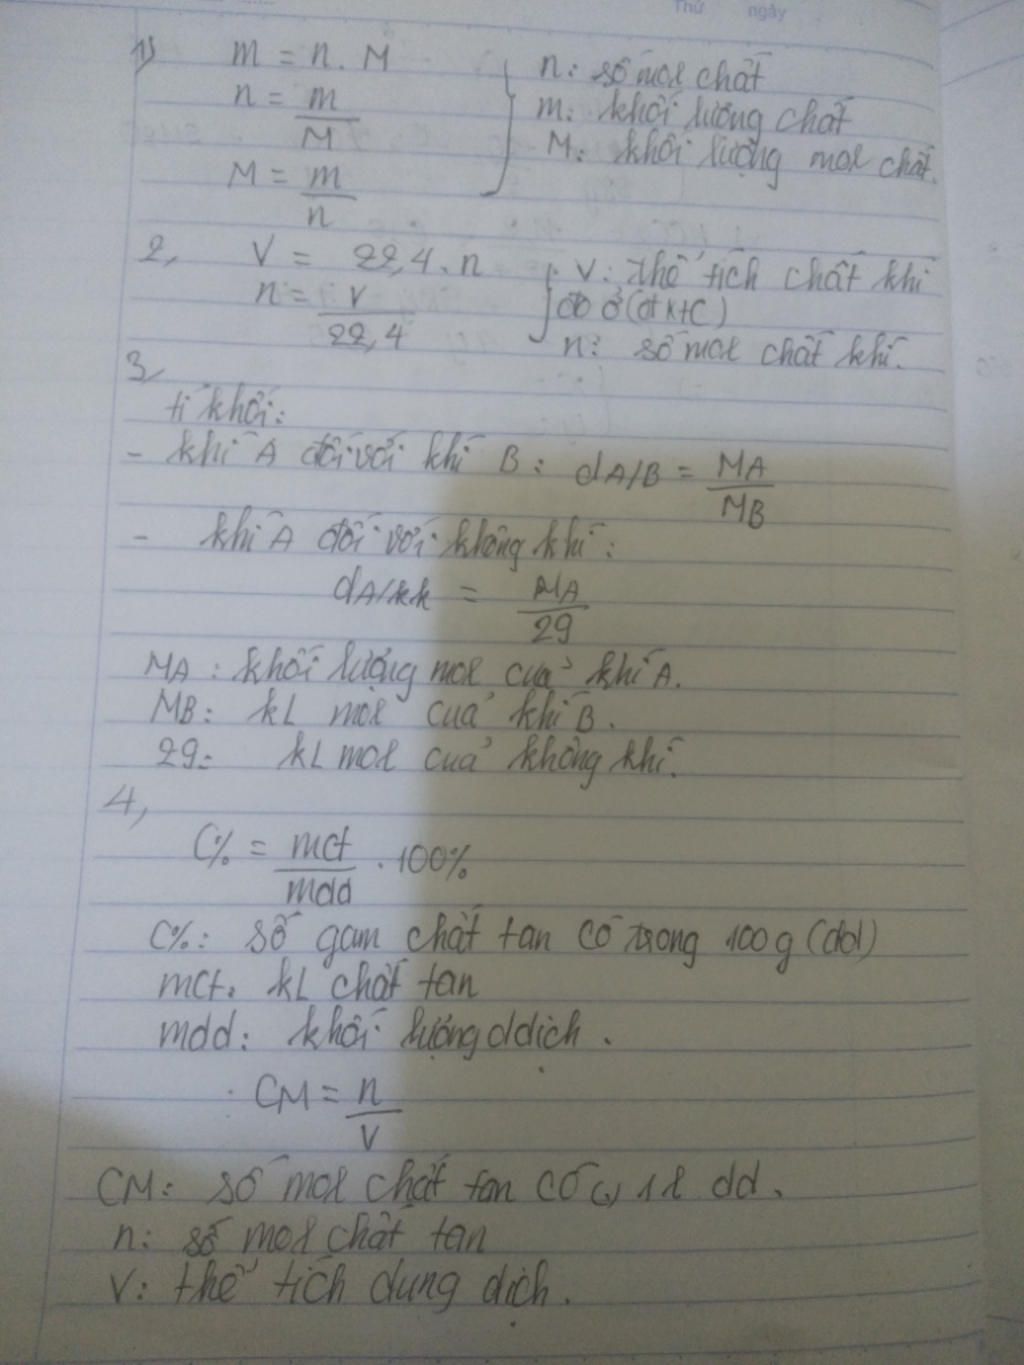 Thứ ngày
1) m = n. M
n: số mol chất
n = m/M
m: khối lượng chất
M: khối lượng mol chất.
M = m/n
2, V = 22,4. n
V: thể tích chất khí
n = V/22,4
đo ở (đktc)
n: số mol chất khí.
3,
tỉ khối:
- khí A đối với khí B: dA/B = MA/MB
- khí A đối với không khí:
dA/kk = MA/29
MA: khối lượng mol của khí A.
MB: kL mol của khí B.
29: kL mol của không khí.
4,
C% = mct/mdd . 100%
C%: số gam chất tan có trong 100g (dd)
mct: kL chất tan
mdd: khối lượng ddịch.
CM = n/V
CM: số mol chất tan có 1l dd.
n: số mol chất tan
V: thể tích dung dịch.